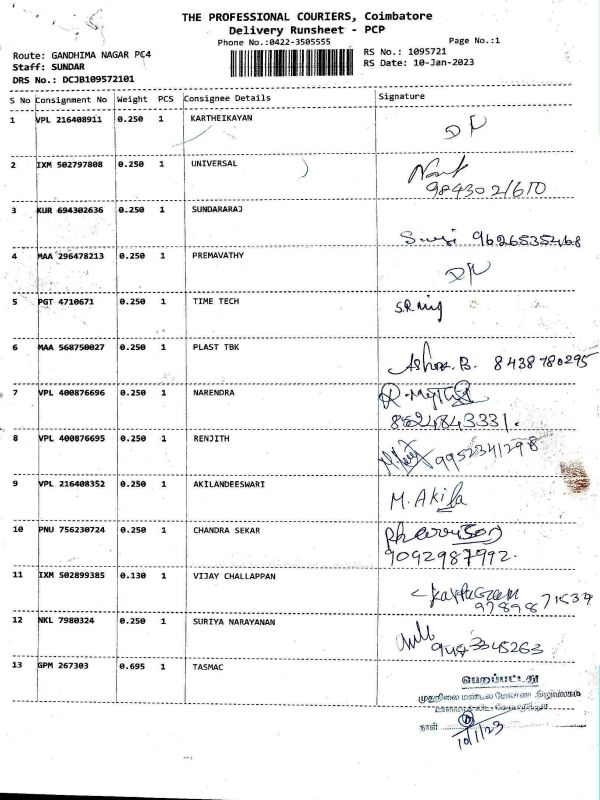 THE PROFESSIONAL COURIERS, Coimbatore
Delivery Runsheet - PCP
Phone No.:0422-3505555 Page No.:1
Route: GANDHIMA NAGAR PC4 RS No.: 1095721
Staff: SUNDAR RS Date: 10-Jan-2023
DRS No.: DCJB109572101
S No Consignment No Weight PCS Consignee Details Signature
1 VPL 216408911 0.250 1 KARTHEIKAYAN
2 IXM 502797808 0.250 1 UNIVERSAL
9843021670
3 KUR 694302636 0.250 1 SUNDARARAJ
9626535468
4 MAA 296478213 0.250 1 PREMAVATHY
5 PGT 4710671 0.250 1 TIME TECH
6 MAA 568750027 0.250 1 PLAST TBK
B. 8438780295
7 VPL 400876696 0.250 1 NARENDRA
8 VPL 400876695 0.250 1 RENJITH
9952341298
9 VPL 216408352 0.250 1 AKILANDEESWARI
M. Akila
10 PNU 756230724 0.250 1 CHANDRA SEKAR
9092987992.
11 IXM 502899385 0.130 1 VIJAY CHALLAPPAN
12 NKL 7980324 0.250 1 SURIYA NARAYANAN
13 GPM 267303 0.695 1 TASMAC
பெறப்பட்டது
நாள்
10/1/23